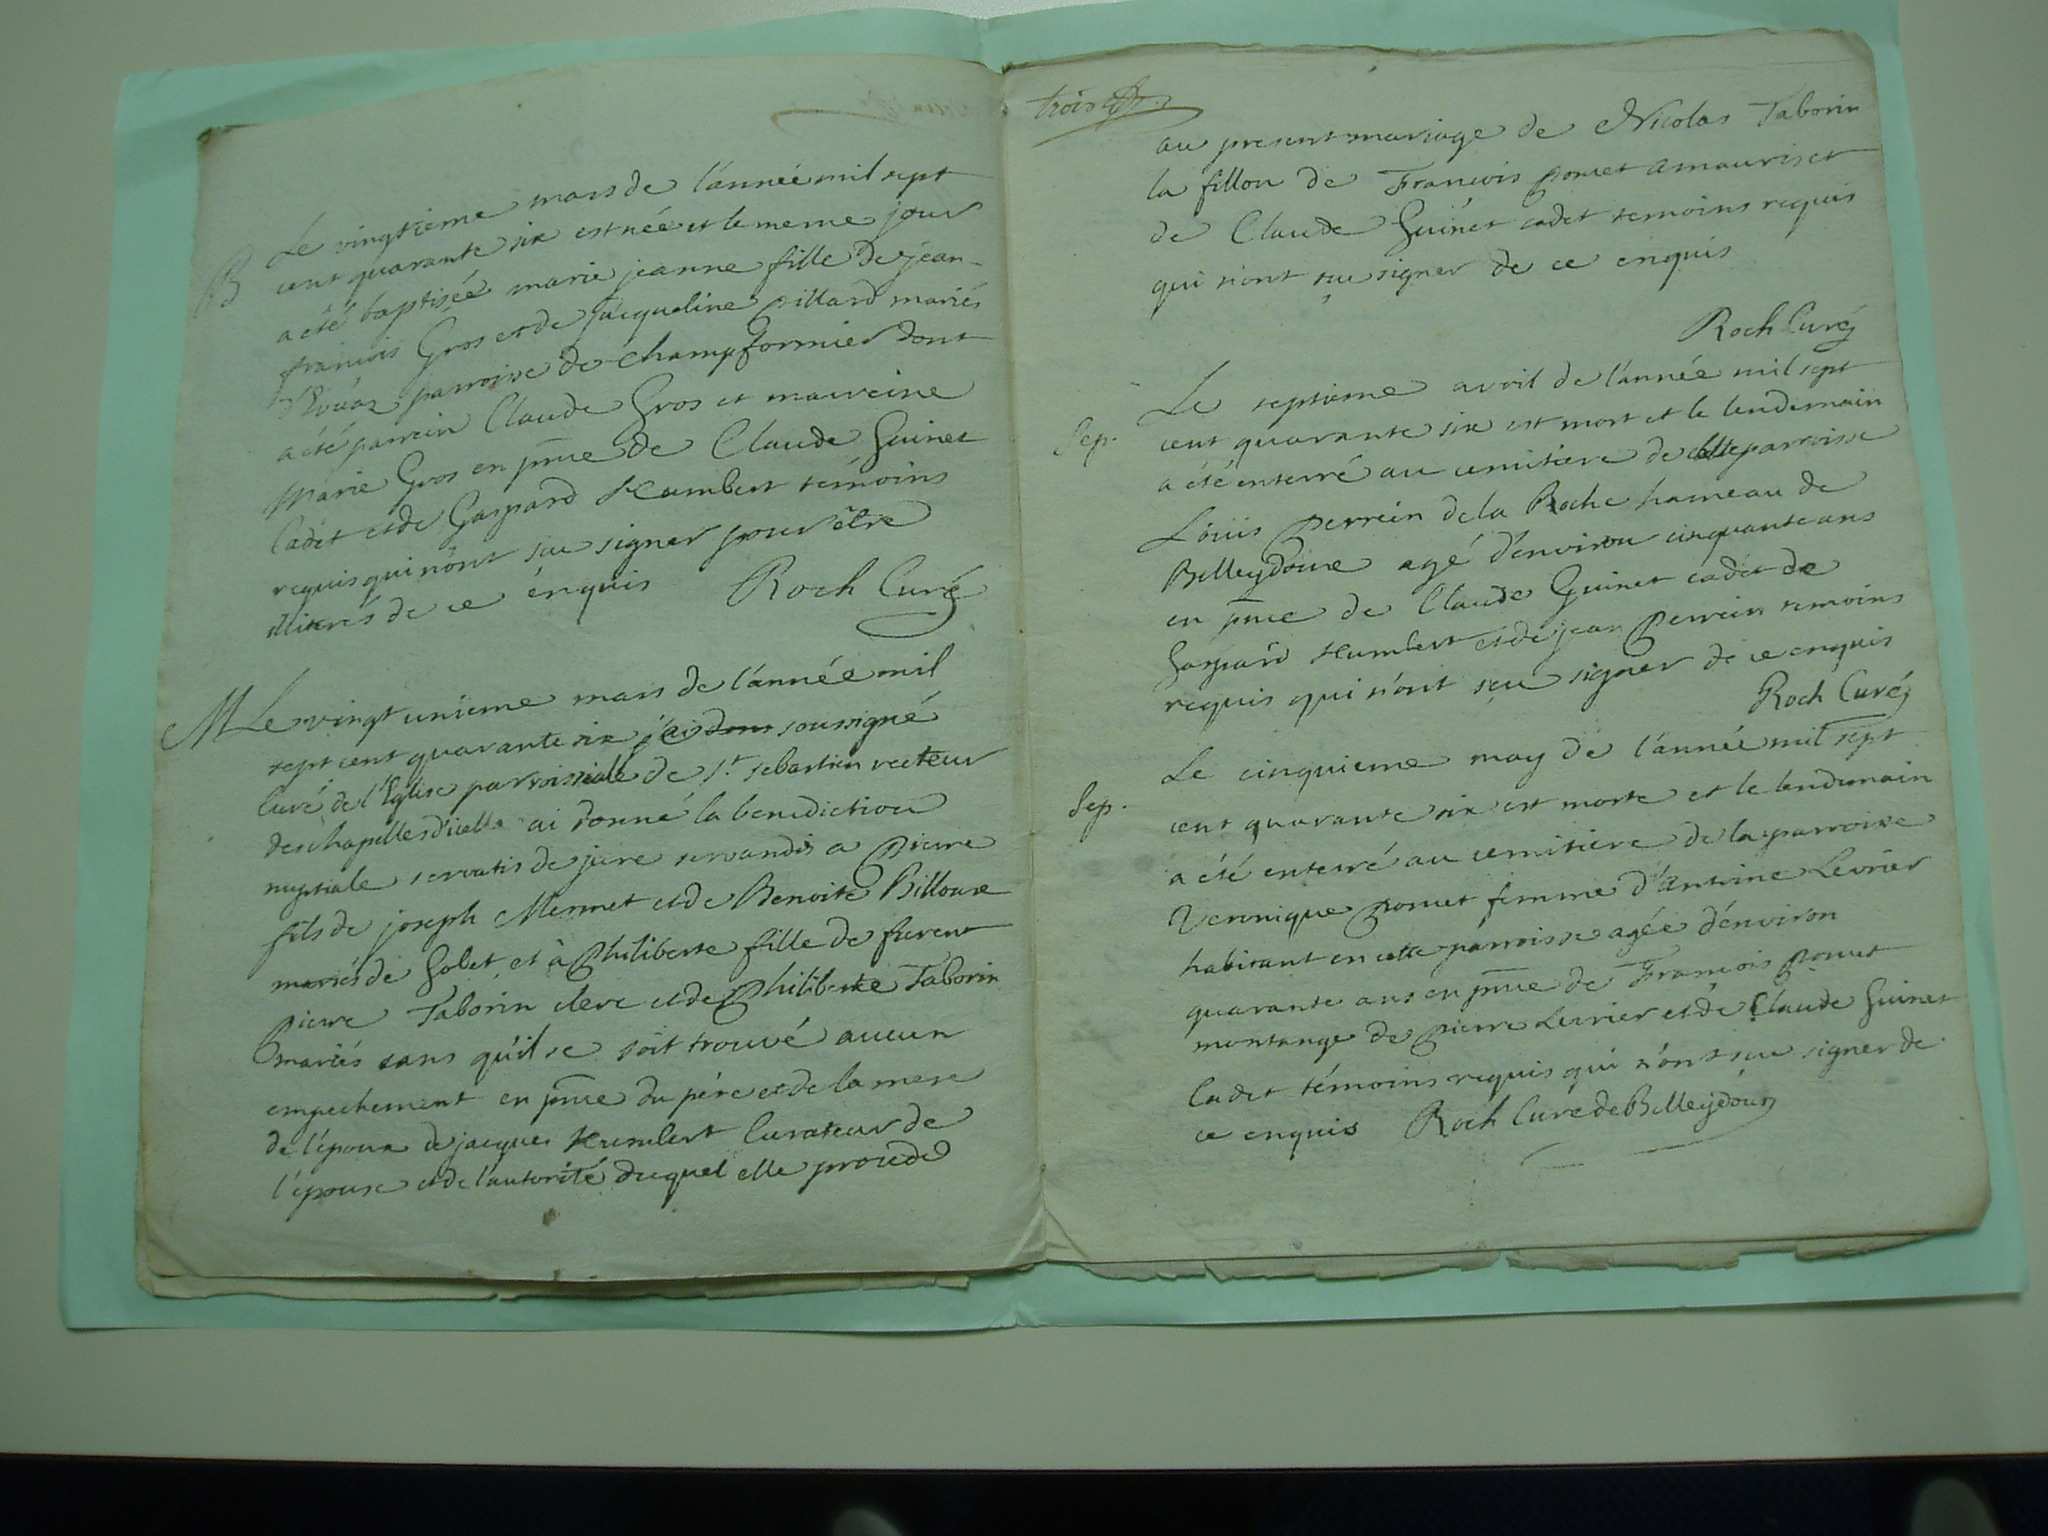 B Le vingtieme mars de l'année mil sept
cent quarante six est née et le meme jour
a été baptisée marie jeanne fille de jean-
francois Gros et de jacqueline pillard mariés
parroisse de champformier dont
a été parrein Claude Gros et marreine
Marie Gros en pnce de Claude Guinet
Cadet et de Gaspard Humbert témoins
requis qui n'ont sçu signer pour être
illiterés de ce énquis Roch Curé
M Le vingt unieme mars de l'année mil
sept cent quarante six j'ai soussigné
Curé de l'Eglise parroissialle de St. sebastien recteur
des chapelles d'icelle ai donné la benediction
nuptiale servatis de jure servandis a pierre
fils de joseph Mermet et de Benoite Billoure
mariés de Gobet et à Philiberte fille de furent
pierre Taborin clerc et de Philiberte Taborin
mariés sans qu'il se soit trouvé aucun
empechement en pnce du pére et de la mere
de l'époux de jacques Humbert Curateur de
l'épouse et de l'autorité duquel elle procede
trois
au present mariage de Nicolas Taborin
la fillon de Francois ponset amauris et
de Claude Guinet cadet temoins requis
qui n'ont sçu signer de ce enquis
Roch Curé
Sep. Le septieme avril de l'année mil sept
cent quarante six est mort et le lendemain
a été enterré au cemitiere de cette parroisse
Loüis perrein de la Roche hameau de
Belleydoux agé d'environ cinquante ans
en pnce de Claude Guinet cadet de
Gaspard Humbert et de jean perrein temoins
requis qui n'ont sçu signer de ce enquis
Roch Curé
Sep. Le cinquieme may de l'année mil sept
cent quarante six est morte et le lendemain
a été enterré au cemitiere de la parroisse
Veronique ponset femme d'antoine Levrier
habitant en cette parroisse agée d'énviron
quarante ans en pnce de Francois ponset
montange de pierre Levrier et de Claude Guinet
Cadet témoins requis qui n'ont sçu signer de
ce enquis Roch Curé de Belleydoux